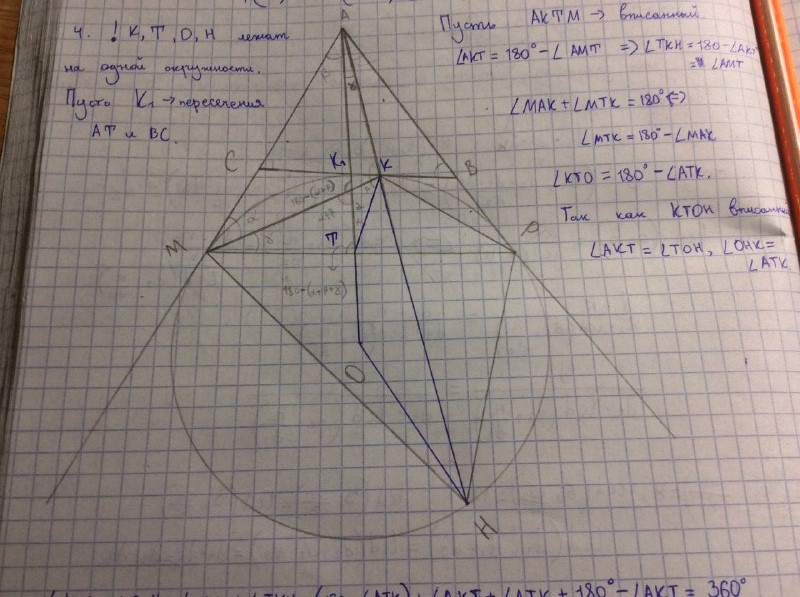 4. ! K, T, O, H лежат
на одной окружности.
Пусть K₁ → пересечения
AT и BC.
Пусть AKTM → вписанный
∠AKT = 180° - ∠AMT => ∠TKH = 180 - ∠AKT
= ∠AMT
∠MAK + ∠MTK = 180° (=>
∠MTK = 180° - ∠MAK
∠KTO = 180° - ∠ATK.
Так как KTOH вписанный
∠AKT = ∠TOH, ∠OHK =
∠ATK
A
C
K₁
K
B
M
α
γ
T
P
180-(α+β+γ)
O
H
∠AKT + ∠ATK + 180° - ∠AKT = 360°